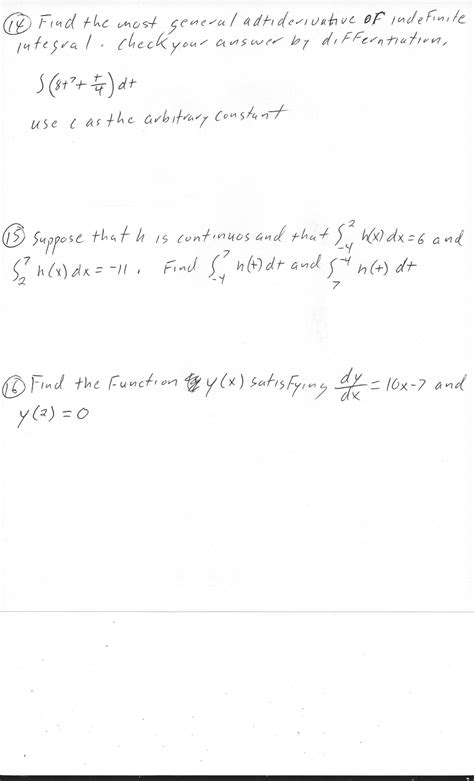 (14) Find the most general adtiderivative OF indefinite
integral. Check your answer by differntiation.
∫(8t⁷ + t/4) dt
use c as the arbitrary constant
(15) Suppose that h is continuos and that ∫₋₄² h(x) dx = 6 and
∫₂⁷ h(x) dx = -11. Find ∫₋₄⁷ h(t) dt and ∫₇⁻⁴ h(t) dt
(16) Find the Function y(x) satisfying dy/dx = 10x-7 and
y(2) = 0